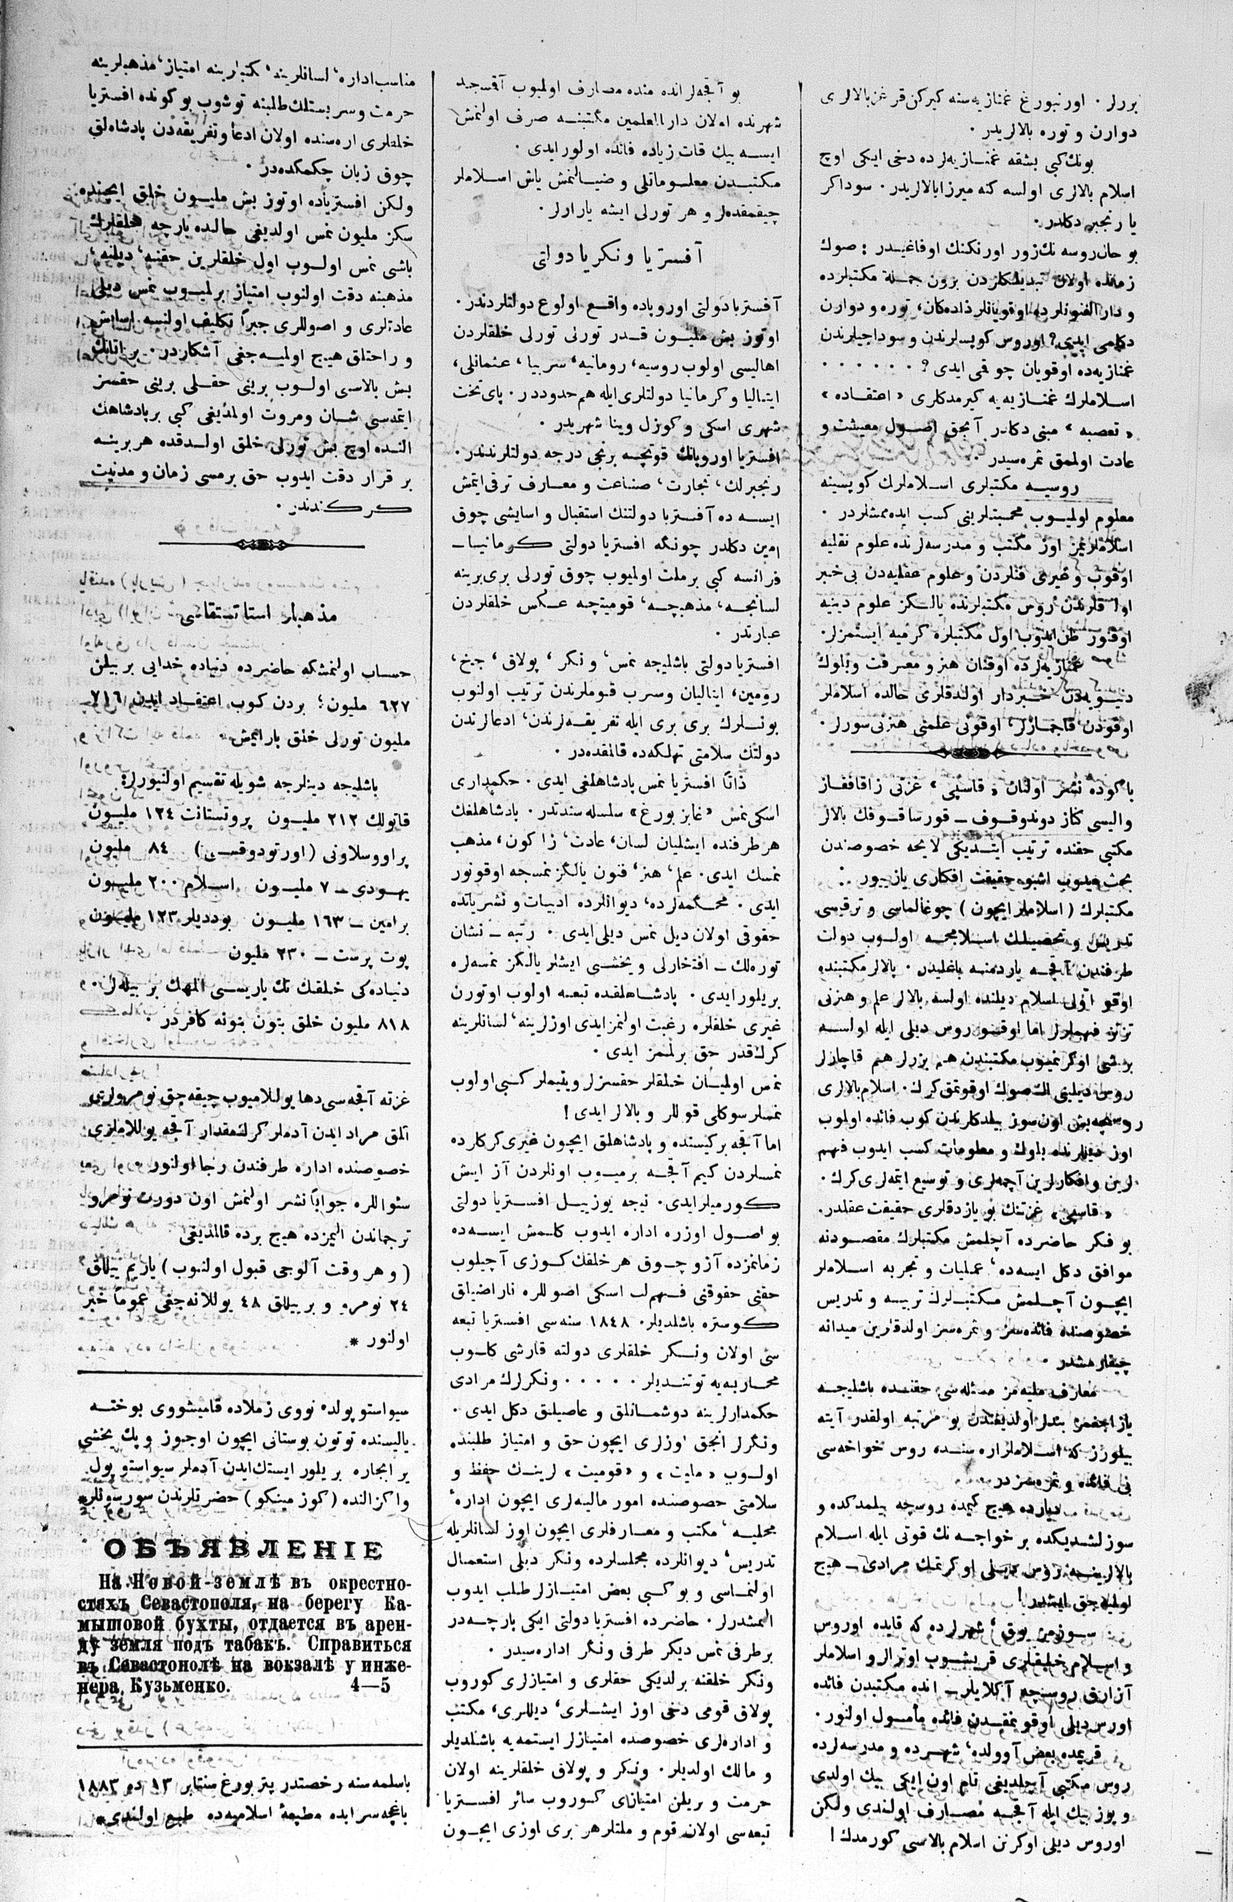 بررلر. اورنبورغ غمنازیه‌سنه کیرکن قرغز بالالری
دوارن و توره بالالریدر.
بونك کبی بشقه غمنازیه‌لرده دخی ایکی اوچ
اسلام بالالری اولسه کنه میرزا بالالریدر. سوداکر
یا رنجبر دکلدر.
بو حال روسیه نك زور اورنکنك اوفاغیدر: صوك
زمانده اولان تبدیلکلردن بزون جمله مکتبلرده
و دار الفنونلرده اوقویانلر ذادەکان، توره و دوارن
دکلمی ایدی؟ اوروس کوپسلرندن و سوداجیلرندن
غمنازیه‌ده اوقویان چوقمی ایدی؟ . . . . . .
اسلاملرك غمنازیه‌یه کیرمدکلری « اعتقاده »
« تعصبه » مبنی دکلدر آنجق اصول معیشت و
عادت اولمق ثمره‌سیدر.
روسیه مکتبلری اسلاملرك کوپیسینه
معلوم اولمیوب محبتلرینی کسب ایده‌ممشلردر.
اسلاملریمز اوز مکتب و مدرسه‌لرنده علوم نقلیه
اوقوب و غیری فنلردن و علوم عقلیه‌دن بی خبر
اولدقلرندن روس مکتبلرنده یالکز علوم دینیه
اوقنور ظن ایدوب اول مکتبلره کرمیه ایستمزلر.
غمنازیه‌لرده اوقنان هنر و معرفت و بلوك
دنیویه‌دن خبردار اولدقلری حالده اسلاملر
اوقودن قاچمازلر، اوقونی علمنی هنرنی سورلر.
باکوده نشر اولنان « قاسپی » غزتی زاقافقاز
والیسی کناز دوندوقوف ـ قورساقوفك بالالر
مکتبی حقنده ترتیب ایتدیکی لایحه خصوصندن
بحث ایدوب اشبو حقیقت افکاری یازیور :
مکتبلرك (اسلاملر ایچون) چوغالماسی و ترقیسی
تدریس و تحصیلك اسلامجه اولوب دولت
طرفندن آقچه یاردمنه باغلیدر. بالالر مکتبنده
اوقو اولی اسلام دیلنده اولسه بالالر علم و هنرنی
تزتز فهملرلر اما اوقو روس دیلی ایله اولسه
بر شی اوکرنمیوب مکتبندن هم بزرلر هم قاچارلر
روس دیلینی الك صوك اوقوتمق کرك. اسلام بالالری
روسچه بش اون سوز بیلدکلرندن کوب فائده اولوب
اوز دیللرنده بلوك و معلومات کسب ایدوب فهم
لرین و افکارلرین آچمه‌لری و توسیع ایتمه‌لری کرك.
« قاسپی » غزتنك بو یازدقلری حقیقت عقلدر.
بو فکر حاضرده آچلمش مکتبلرك مقصودنه
موافق دکل ایسه‌ده، عملیات و تجربه اسلاملر
ایچون آچلمش مکتبلرك تربیه و تدریس
خصوصنده فائده‌سز و ثمره‌سز اولدقلرین میدانه
چیقارمشدر.
معارف ملیه‌مز مسئله‌سی حقنده باشلیجه
یازاجغمز بندلر اولدیغندن بو مرتبه اولقدر آیته
بیلورز که اسلاملر اره‌سنده روس خواجه‌سی
بی فائده و ثمره‌سزدر.
دیارده هیچ کیمده روسچه بیلمدکده و
سوزلشدیکده بر خواجه نك قوتی ایله اسلام
بالالرینه روس دیلی اوکرتمك مرادی ـ هیچ
اولمایه‌جق ایشدر!
سوزمز یوق، شهرلرده که قایده اوروس
و اسلام خلقلری قریشوب اوتورالر و اسلاملر
آزارق روسچه آکلایلر ـ انده مکتبدن فائده
اورس دیلی اوقونمقدن فائده مأمول اولنور.
قریمده بعض آوولده، شهرده و مدرسه‌لرده
روس مکتبی آچلدیغی تام اون ایکی ییك اولدی
و یوز بیك ایله آقچه مصارف اولندی ولکن
اوروس دیلی اوکرنن اسلام بالاسی کورمدك!
بو آقچه‌لرانده منده مصارف اولمیوب آقمسجید
شهرنده اولان دار المعلمین مکتبنه صرف اولنمش
ایسه بیك قات زیاده فائده اولور ایدی.
مکتبدن معلوماتلی و ضیالنمش یاش اسلاملر
چیقمقده‌لر و هر تورلی ایشه یارارلر.
آفستریا ونکریا دولتی
آفستریا دولتی اوروپاده واقع اولوغ دولتلردندر.
اوتوز بش ملیون قدر تورلی تورلی خلقلردن
اهالیسی اولوب روسیه، رومانیه، سربیا، عثمانلی،
ایتالیا و کرمانیا دولتلری ایله هم حدوددر. پای تخت
شهری اسکی و کوزل وینا شهریدر.
افستریا اوروپانك قوتجه برنجی درجه دولتلرندندر.
رنجبرلك، تجارت، صناعت و معارف ترقی ایتمش
ایسه ده آفستریا دولتنك استقبال و اسایشی چوق
امین دکلدر چونکه افستریا دولتی کرمانیا ـ
فرانسه کبی بر ملت اولمیوب چوق تورلی بری برینه
لسانجه، مذهبچه، قومیتچه عکس خلقلردن
عبارتدر.
افستریا دولتی باشلیجه نمس، ونکر، پولاق، چیخ،
رومین، ایتالیان و سرب قوملرندن ترتیب اولنوب
بونلرك بری بری ایله تفریقه‌لرندن، ادعالرندن
دولتك سلامتی تهلکه‌ده قالمقده‌در.
ذاتا افستریا نمس پادشاهلغی ایدی. حکمداری
اسکی نمس « غابزبورغ » سلسله سندندر. پادشاهلغك
هر طرفنده ایشلیان لسان، عادت، زاکون، مذهب
نمسك ایدی. علم، هنر، فنون یالکز نمسجه اوقونور
ایدی. محکمه‌لرده، دیوانلرده ادبیات و نشریاتده
حقوقی اولان دیل نمس دیلی ایدی. رتبه ـ نشان
توره‌لك ـ افتخارلی و یخشی ایشلر یالکز نمسه‌لره
بریلور ایدی. پادشاهلقده تبعه اولوب اوتورن
غیری خلقلره رغبت اولنمز ایدی اوزلرینه، لسانلرینه
کرك قدر حق برلمز ایدی.
نمس اولمیان خلقلر حقسزلر و یتیملر کبی اولوب
نمسلر سوکلی قوللر و بالالر ایدی!
اما آقچه برکیسنده و پادشاهلق ایچون غیری کرکلرده
نمسلردن کیم آقچه برمیوب اونلردن آز ایش
کورمیلر ایدی. نیجه یوز ییل افستریا دولتی
بو اصول اوزره اداره ایدوب کلمش ایسه‌ده
زمانمزده آز و چوق هر خلقك کوزی آچیلوب
حقنی حقوقنی فهملب اسکی اصوللره ناراضیلق
کوستره باشلدیلر. ١٨٤٨ سنه‌سی افستریا تبعه
سی اولان ونکر خلقلری دولته قارشی کلوب
محاربه‌یه توتندیلر . . . . . ونکرلرك مرادی
حکمدارلرینه دوشمانلق و عاصیلق دکل ایدی.
ونکرلر انجق اوزلری ایچون حق و امتیاز طلبنده
اولوب « ملیت » و « قومیت » لرینك حفظ و
سلامتی خصوصنده امور مالیه‌لری ایچون اداره،
محلیه، مکتب و معارفلری ایچون اوز لسانلریله
تدریس، دیوانلرده مجلسلرده ونکر دیلی استعمال
اولنماسی و بو کبی بعض امتیازلر طلب ایدوب
المشدرلر. حاضرده افستریا دولتی ایکی پارچه‌در
بر طرفی نمس دیکر طرفی ونکر اداره سیدر.
ونکر خلقنه برلدیکی حقلری و امتیازلری کوروب
پولاق قومی دخی اوز ایشلری، دیللری، مکتب
و اداره‌لری خصوصده امتیازلر ایستمه‌یه باشلدیلر
و مالك اولدیلر. ونکر و پولاق خلقلرینه اولان
حرمت و بریلن امتیازلری کوروب سائر افستریا
تبعه‌سی اولان قوم و ملتلر هر بری اوزی ایچون
مناسب اداره، لسانلرینه، کتبلرینه امتیاز، مذهبلرینه
حرمت و سربستلك طلبنه توشوب بو کونده افستریا
خلقلری اره‌سنده اولان ادعا و تفریقه‌دن پادشاه‌لق
چوق زیان چکمکده‌در.
ولکن افستریاده اوتوز بش ملیون خلق ایچنده
سکز ملیون نمس اولدیغی حالده پارچه خلقلرك
باشی نمس اولوب اول خلقلرین حقنه، دیلنه،
مذهبنه دقت اولنوب امتیاز برلمیوب نمس دیلی
عادتلری و اصوللری جبراً تکلیف اولنسه اسایش
و راحتلق هیچ اولمیه جغی آشکاردر. بر اتانك
بش بالاسی اولوب برینی حقلی برینی حقسز
ایتمه‌سی شان و مروت اولمدیغی کبی بر پادشاهك
النده اوچ بش تورلی خلق اولدقده هر برینه
بر قرار دقت ایدوب حق برمسی زمان و مدنیت
کرکندندر.
مذهبلر استاتستقاسی
حساب اولنمشکه حاضرده دنیاده خدایی بر بیلن
٦٢٧ ملیون؛ بردن کوب اعتقاد ایدن ٧١٦
ملیون تورلی خلق یارالمیش.
باشلیجه دینلرجه شویله تقسیم اولنیورلر:
قاتولك ٢١٢ ملیون پروتستانت ١٢٤ ملیون
پراووسلاونی (اورتودوقسی) ٨٤ ملیون
یهودی ـ ٧ ملیون اسلام ٢٠٠ ملیون
برامین ـ ١٦٣ ملیون بوددیلر ١٢٣ ملیون
پوت پرست ـ ٢٣٠ ملیون
دنیاده‌کی خلقك نك یاریسی اللهك بر بیله‌لر.
٨١٨ ملیون خلق بتون بتونه کافردر.
غزته آقچه‌سی دها یوللامیوب چیقه‌جق نومرولرنی
آلمق مراد ایدن آدملر کرك مقدار آقچه یوللاملری
خصوصنده اداره طرفندن رجا اولنور.
سئواللره جواباً نشر اولنمش اون دورت نومرو
ترجماندن الیمزده هیچ برده قالمدیغی
(و هر وقت آلوجی قبول اولنوب) یازیم ییللق
٢٤ نومرو و بر ییللق ٤٨ یوللانه‌جغی عموماً خبر
اولنور *
سیواستوپولده نووی زملاده قامیشووی بوخته
یالیسنده توتون بوستانی ایچون اوجوز و پك یخشی
یر ایجاره بریلور ایستك ایدن آدملر سیواستوپول
واکزالنده (کوزمینکو) حضرتلرندن سورسونلر.
ОБЪЯВЛЕНІЕ
На Новой-землѣ въ окрестно-
стяхъ Севастополя, на берегу Ка-
мышовой бухты, отдается въ арен-
ду земля подъ табакъ. Справиться
въ Севастополѣ на вокзалѣ у инже-
нера, Кузьменко. 4—5
باسلمه سنه رخصتدر پتربورغ سنتابر ١٣ ده ١٨٨٣
باغچه سرایده مطبعهٔ اسلامیه‌ده طبع اولندی.